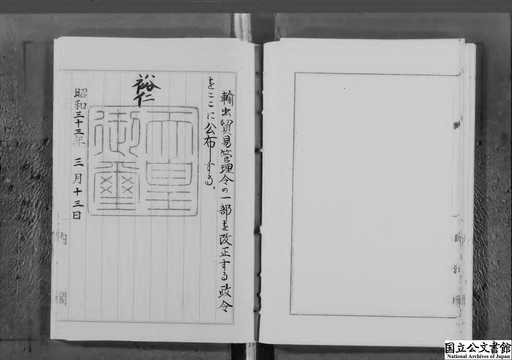 輸出貿易管理令の一部を改正する政令
をここに公布する。
裕仁
天皇
御璽
昭和三十三年 三月十三日
内閣
国立公文書館
National Archives of Japan